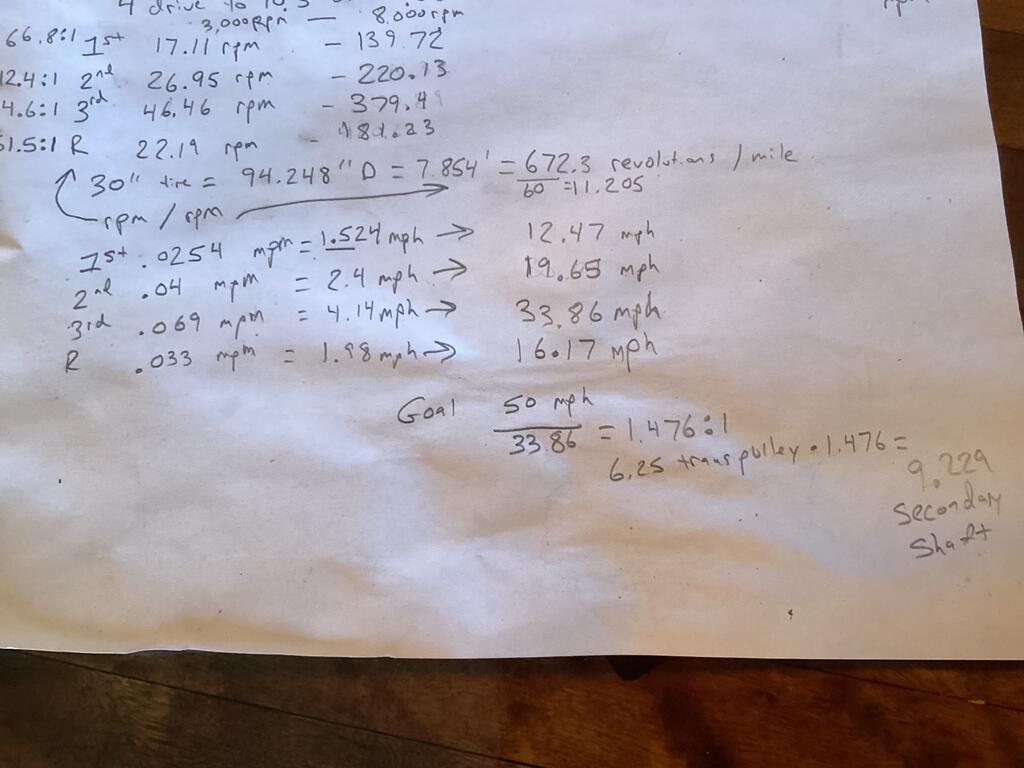 4 drive to 10.5
rpm
3,000rpm — 8,000rpm
66.8:1 1st 17.11 rpm - 139.72
12.4:1 2nd 26.95 rpm - 220.13
4.6:1 3rd 46.46 rpm - 379.49
51.5:1 R 22.19 rpm - 181.23
30" tire = 94.248" D = 7.854' = 672.3 revolutions / mile
60 = 11.205
rpm / rpm
1st .0254 mpm = 1.524 mph → 12.47 mph
2nd .04 mpm = 2.4 mph → 19.65 mph
3rd .069 mpm = 4.14 mph → 33.86 mph
R .033 mpm = 1.98 mph → 16.17 mph
Goal 50 mph
33.86 = 1.476:1
6.25 trans pulley • 1.476 =
9.229
Secondary
Shaft